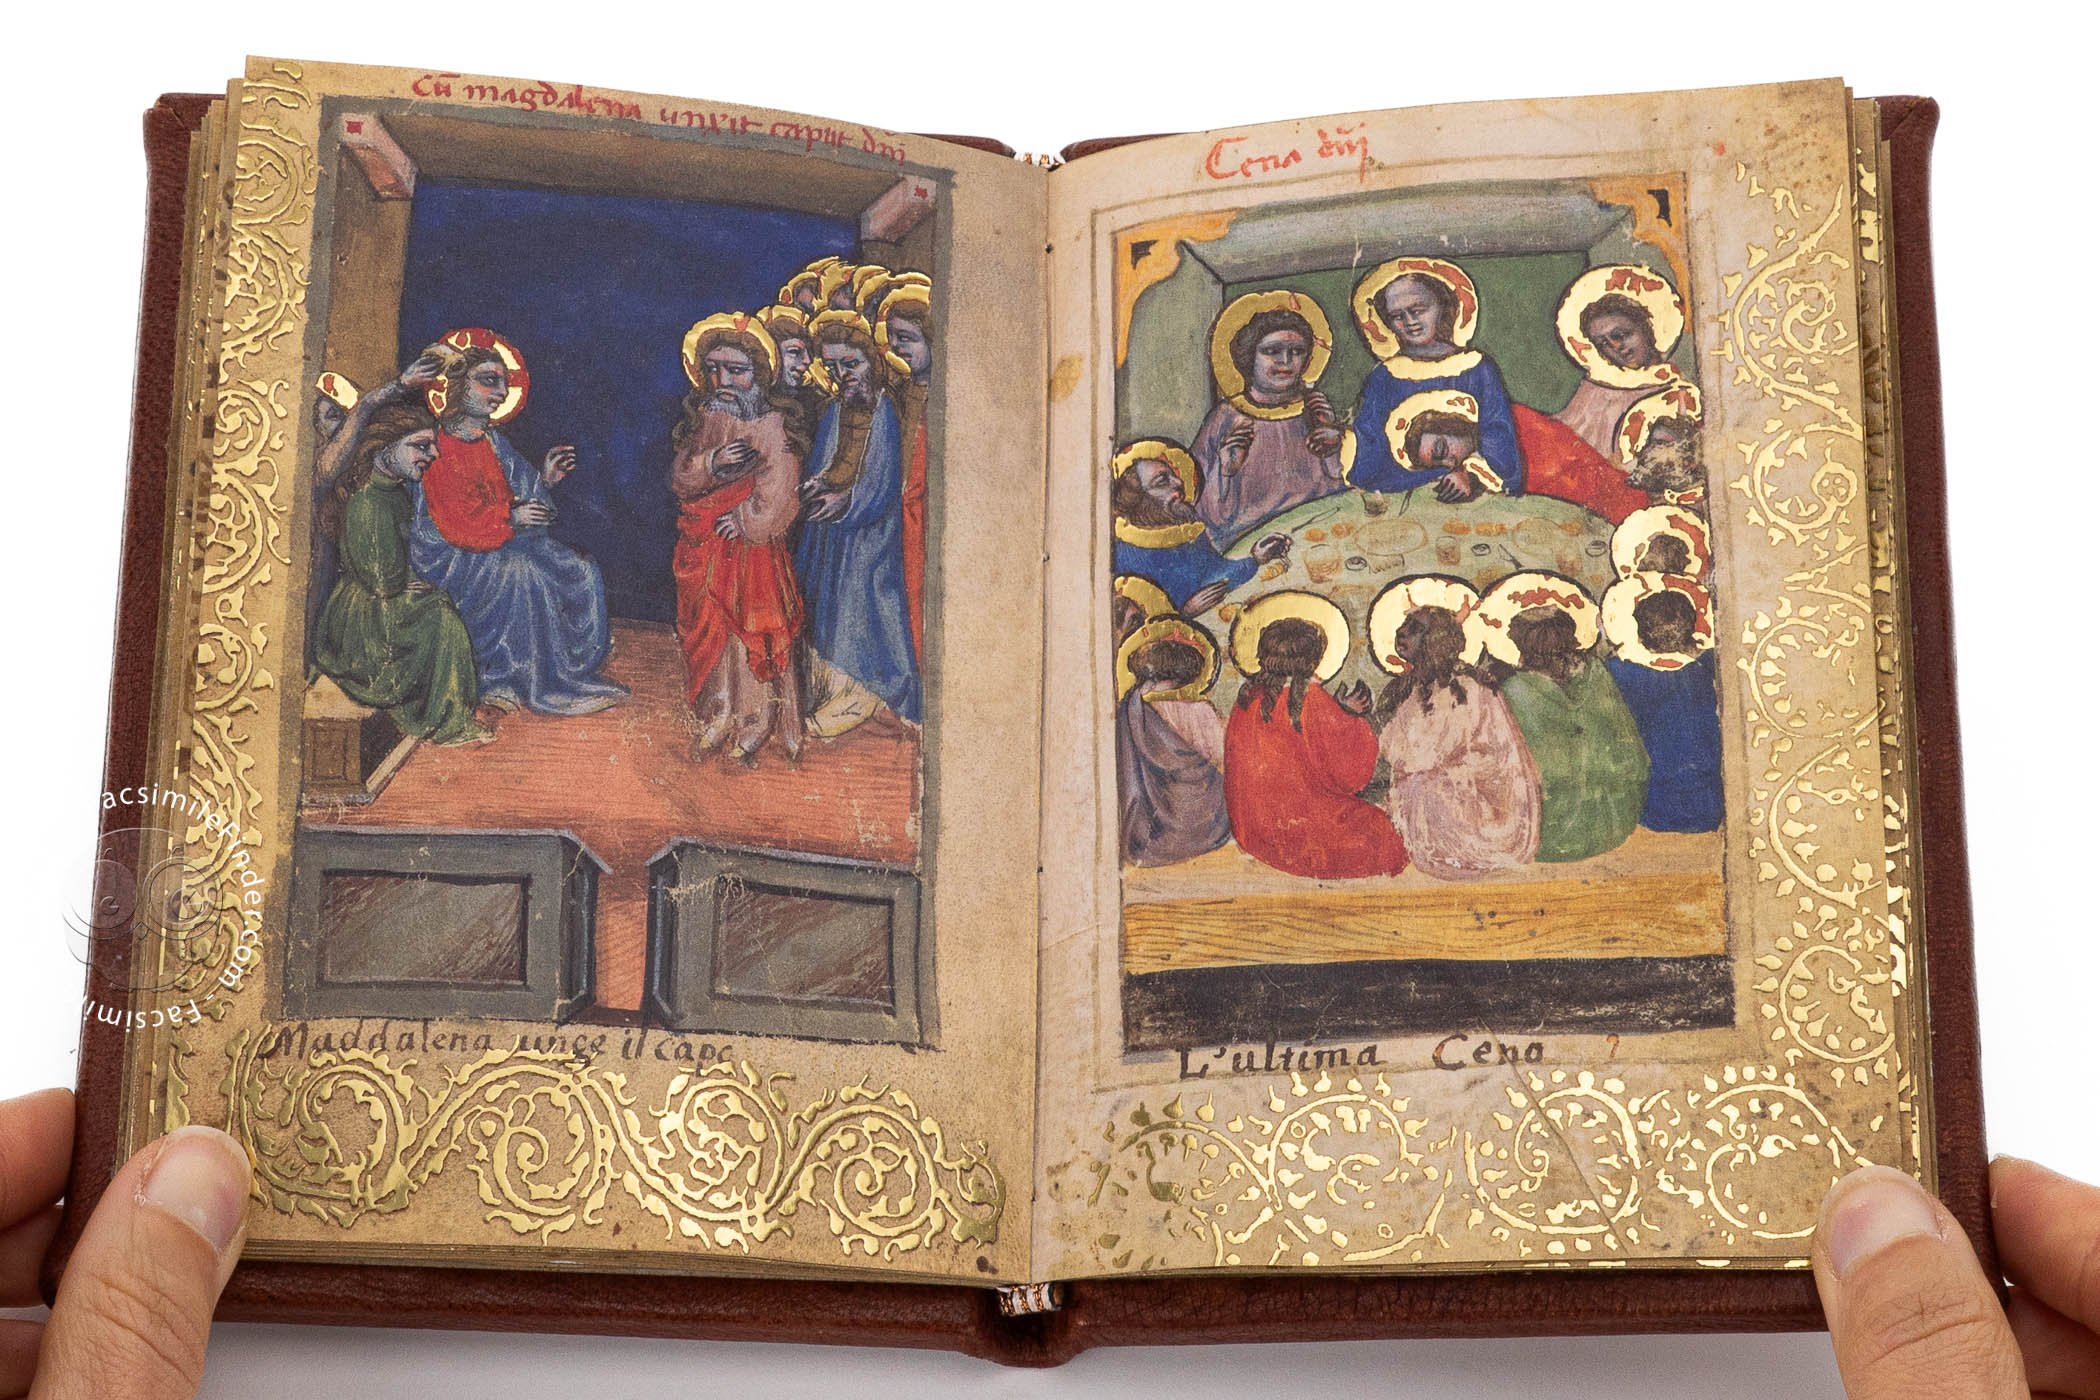 cũ magdalena unxit caput dñi
Maddalena unge il capo
Cena dñi
L'ultima Cena
FacsimileFinder.com - Facsimi